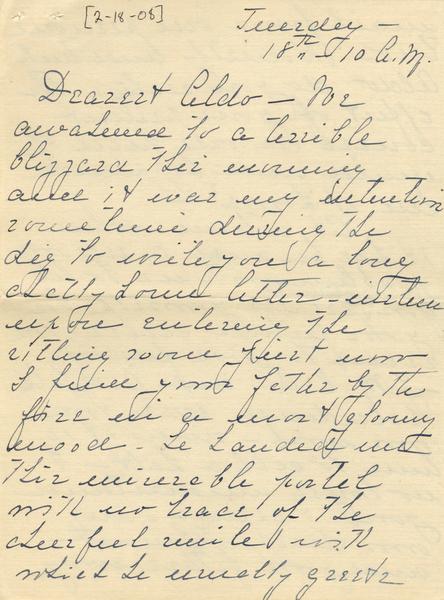 [2-18-08]
Tuesday —
18th — 10 A.M.
Dearest Aldo — We
awakened to a terrible
blizzard this morning
and it was my intention
sometime during the
day to write you a long
chatty home letter — instead
upon entering the
sitting room just now
I find your father by the
fire in a most gloomy
mood — He handed me
this miserable postal
with no trace of the
cheerful smile with
which he usually greets